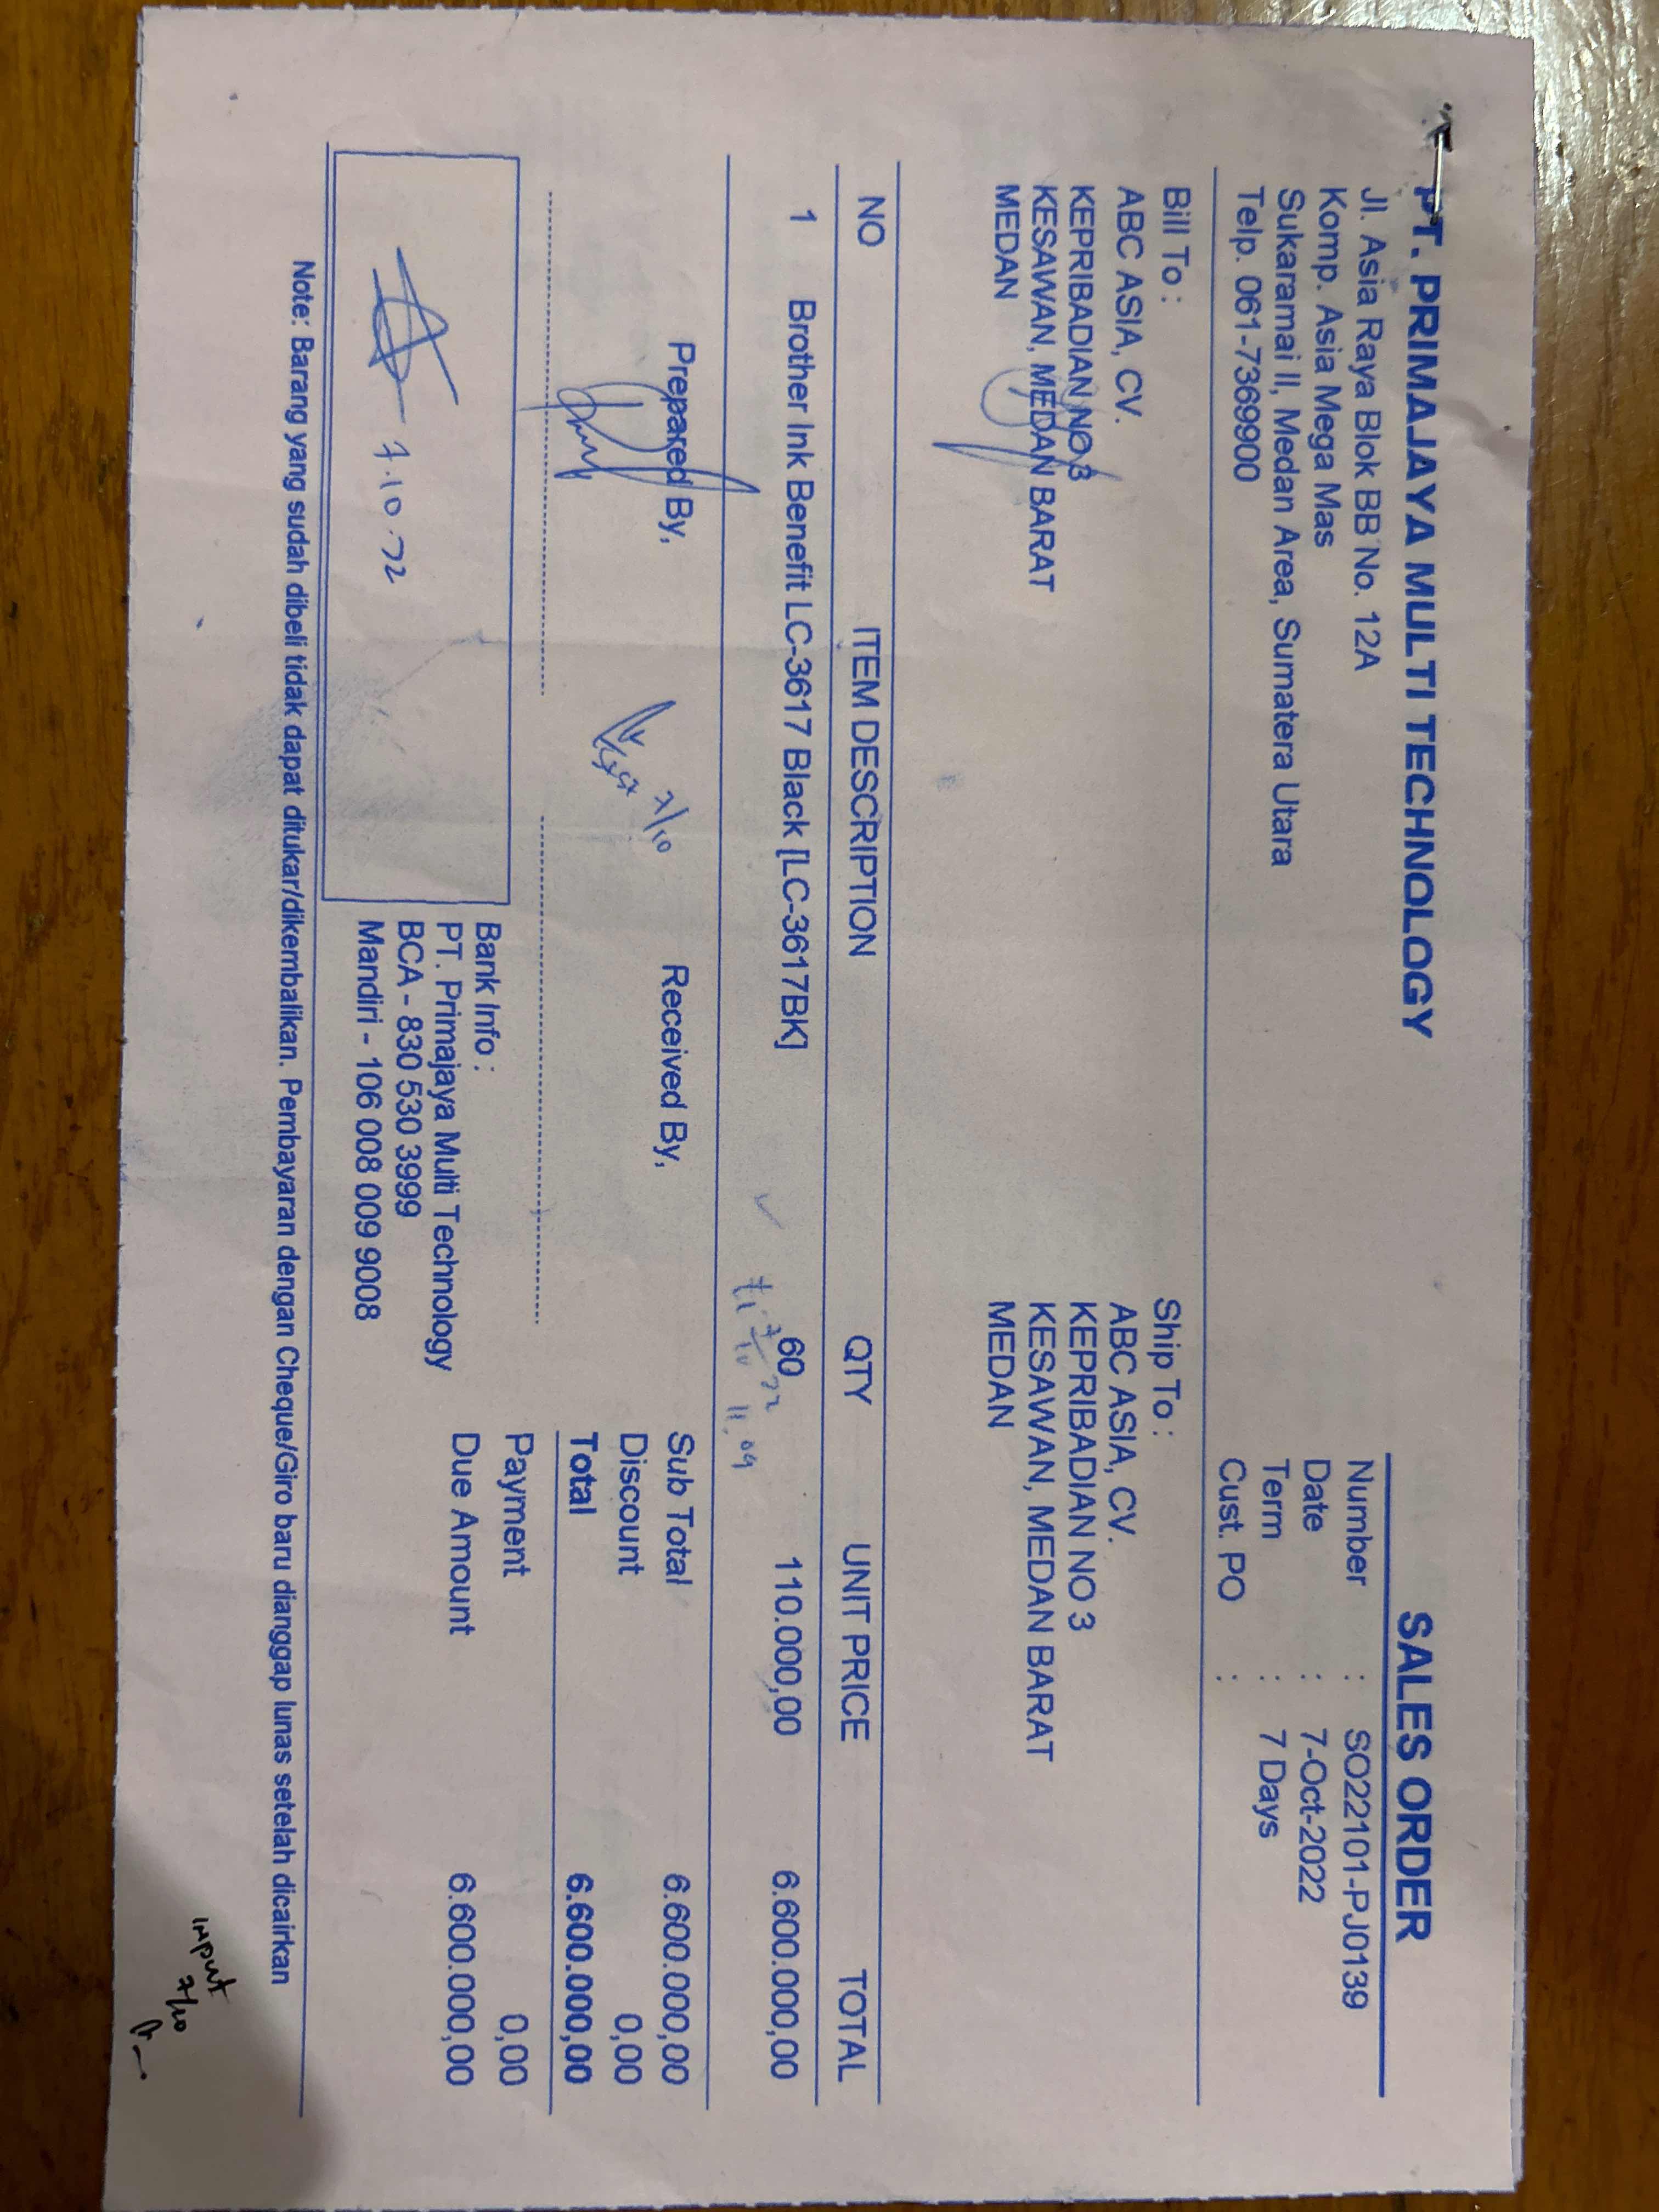 PT. PRIMAJAYA MULTI TECHNOLOGY
Jl. Asia Raya Blok BB No. 12A
Komp. Asia Mega Mas
Sukaramai II, Medan Area, Sumatera Utara
Telp. 061-7369900
SALES ORDER
Number : SO22101-PJ0139
Date : 7-Oct-2022
Term : 7 Days
Cust. PO :
Bill To :
ABC ASIA, CV.
KEPRIBADIAN NO 3
KESAWAN, MEDAN BARAT
MEDAN
Ship To :
ABC ASIA, CV.
KEPRIBADIAN NO 3
KESAWAN, MEDAN BARAT
MEDAN
NO ITEM DESCRIPTION QTY UNIT PRICE TOTAL
1 Brother Ink Benefit LC-3617 Black [LC-3617BK] 60 110.000,00 6.600.000,00
11.09
Prepared By,
Received By,
7/10
Sub Total 6.600.000,00
Discount 0,00
Total 6.600.000,00
Payment 0,00
Due Amount 6.600.000,00
7.10.22
Bank Info :
PT. Primajaya Multi Technology
BCA - 830 530 3999
Mandiri - 106 008 009 9008
Note: Barang yang sudah dibeli tidak dapat ditukar/dikembalikan. Pembayaran dengan Cheque/Giro baru dianggap lunas setelah dicairkan
input
7/10